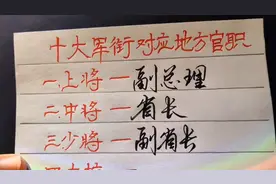 十大军衔对应地方官职
一.上将一副总理
二.中将一省长
三.少将一副省长